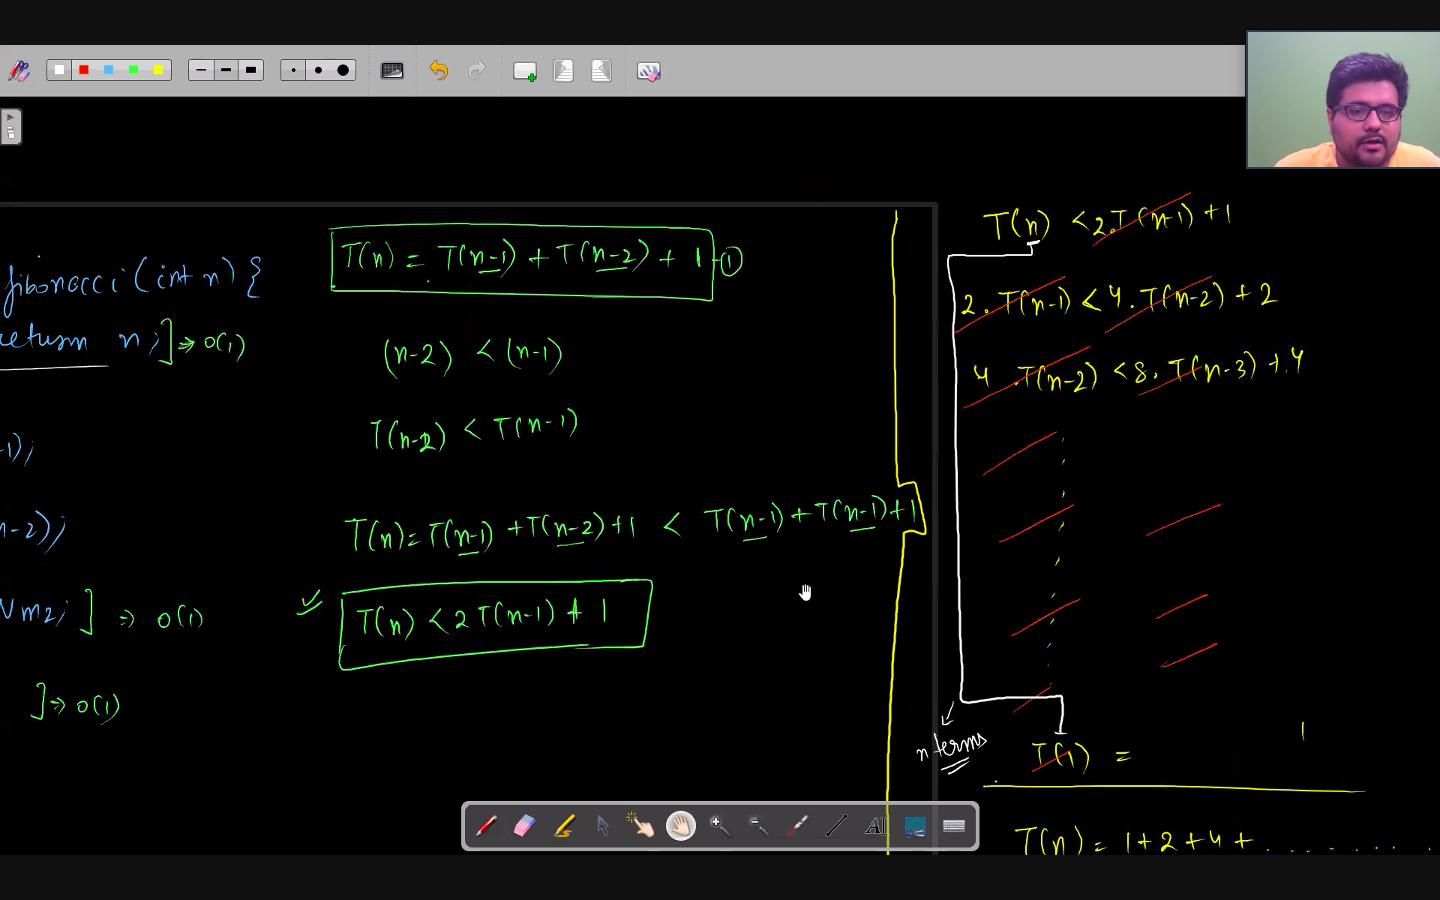 fibonacci(int n){
return n;] => O(1)
-1);
n-2);
] => O(1)
] => O(1)
T(n) = T(n-1) + T(n-2) + 1 -①
(n-2) < (n-1)
T(n-2) < T(n-1)
T(n) = T(n-1) + T(n-2) + 1 < T(n-1) + T(n-1) + 1
T(n) < 2 T(n-1) + 1
T(n) < 2.T(n-1) + 1
2.T(n-1) < 4.T(n-2) + 2
4.T(n-2) < 8.T(n-3) + 4
n terms
T(1) = 1
T(n) = 1+2+4+.........
AI